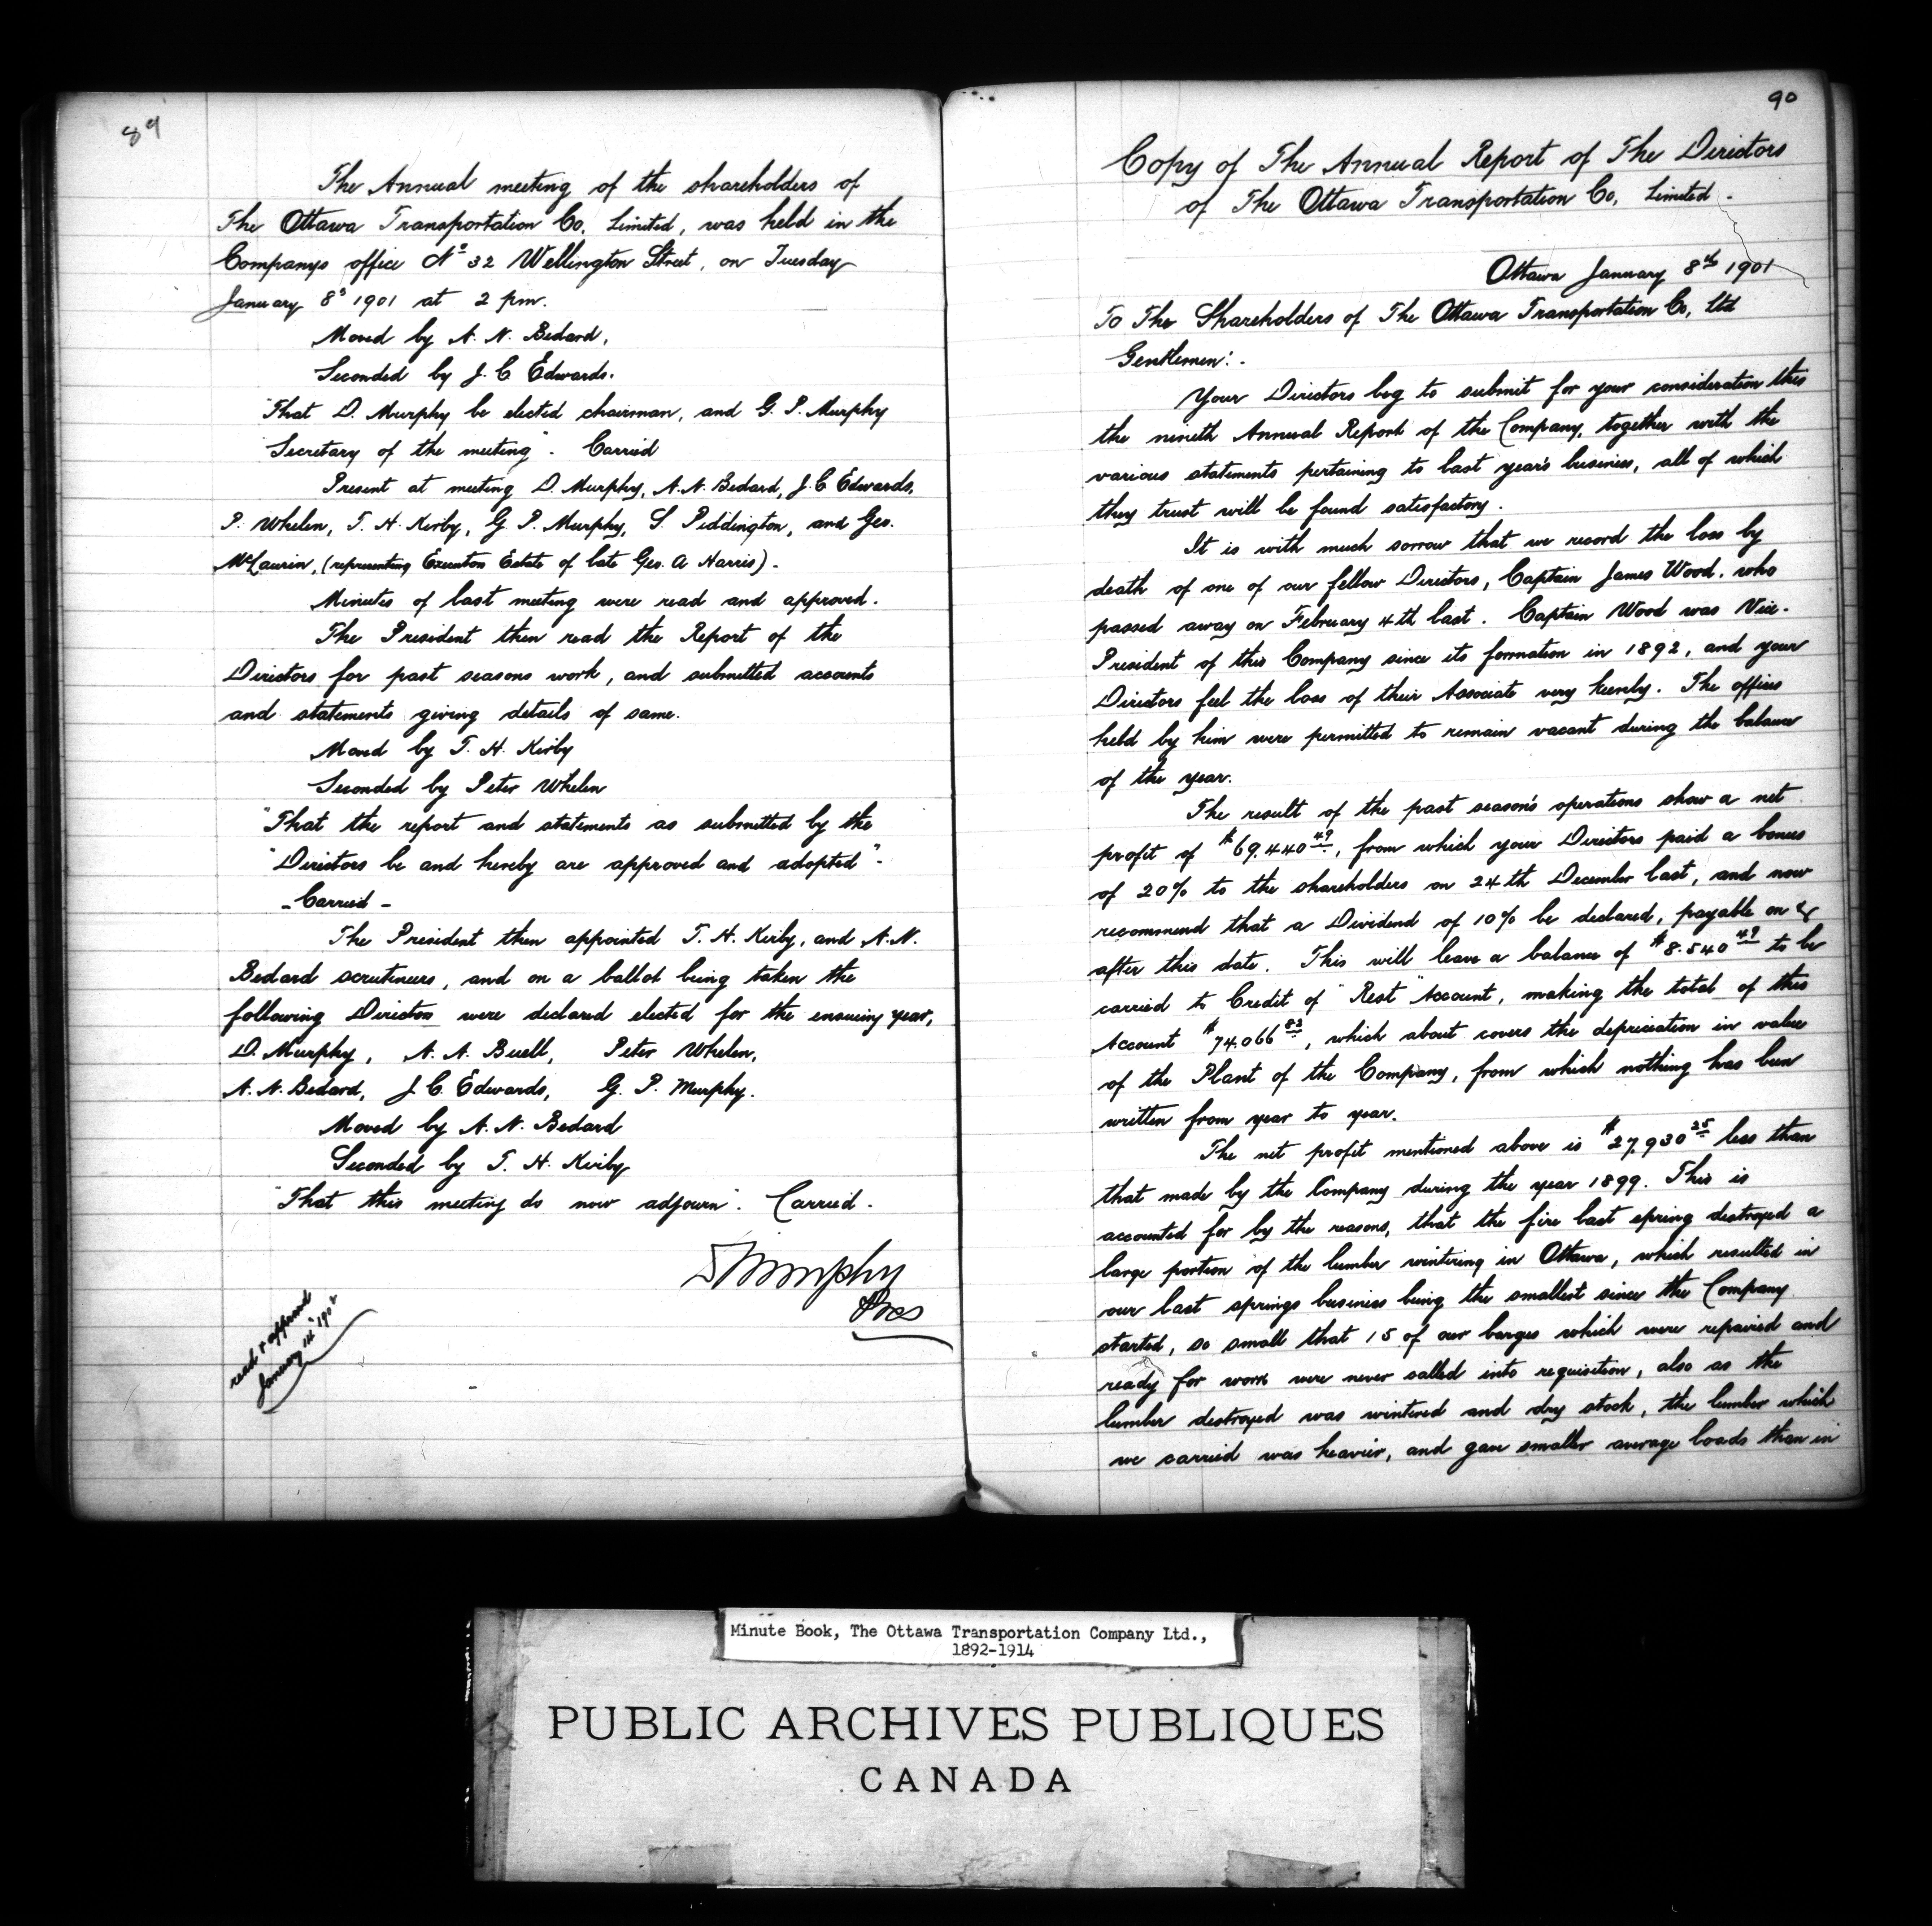 89
The Annual meeting of the shareholders of
The Ottawa Transportation Co, Limited, was held in the
Companys office No 32 Wellington Street, on Tuesday
January 8th 1901 at 2 pm.
Moved by A. N. Bedard,
Seconded by J. C Edwards.
"That D. Murphy be elected chairman, and G. P. Murphy
"Secretary of the meeting". Carried
Present at meeting D. Murphy, A. N. Bedard, J. C Edwards,
P. Whelen, T. H. Kirby, G P. Murphy, S. Piddington, and Geo.
McLaurin, (representing Executors Estate of late Geo. A Harris).
Minutes of last meeting were read and approved.
The President then read the Report of the
Directors for past seasons work, and submitted accounts
and statements giving details of same.
Moved by T. H. Kirby
Seconded by Peter Whelen
"That the report and statements as submitted by the
"Directors be and hereby are approved and adopted".
- Carried -
The President then appointed T. H. Kirby, and A. N.
Bedard scrutineers, and on a ballot being taken the
following Directors were declared elected for the ensuing year,
D. Murphy, A. A. Buell, Peter Whelen,
A. N. Bedard, J. C. Edwards, G. P. Murphy.
Moved by A. N. Bedard
Seconded by T. H. Kirby
"That this meeting do now adjourn". Carried.
D Murphy
Pres
read & approved
January 14" 1902
90
Copy of The Annual Report of The Directors
of The Ottawa Transportation Co, Limited.
Ottawa January 8th 1901
To The Shareholders of The Ottawa Transportation Co, Ltd
Gentlemen:.
Your Directors beg to submit for your consideration this
the nineth Annual Report of the Company, together with the
various statements pertaining to last year's business, all of which
they trust will be found satisfactory.
It is with much sorrow that we record the loss by
death of one of our fellow Directors, Captain James Wood, who
passed away on February 4th last. Captain Wood was Vice-
President of this Company since its formation in 1892, and your
Directors feel the loss of their Associate very keenly. The offices
held by him were permitted to remain vacant during the balance
of the year.
The result of the past season's operations show a net
profit of $69,440 49, from which your Directors paid a bonus
of 20% to the shareholders on 24th December last, and now
recommend that a Dividend of 10% be declared, payable on &
after this date. This will leave a balance of $8.540 49 to be
carried to Credit of "Rest" Account, making the total of this
Account $74,066 83, which about covers the depriciation in value
of the Plant of the Company, from which nothing has been
written from year to year.
The net profit mentioned above is $27,930 25 less than
that made by the Company during the year 1899. This is
accounted for by the reasons, that the fire last spring destroyed a
large portion of the lumber wintering in Ottawa, which resulted in
our last springs business being the smallest since the Company
started, so small that 15 of our barges which were repaired and
ready for work were never called into requisition, also as the
lumber destroyed was wintered and dry stock, the lumber which
we carried was heavier, and gave smaller average loads than in
Minute Book, The Ottawa Transportation Company Ltd.,
1892-1914
PUBLIC ARCHIVES PUBLIQUES
CANADA